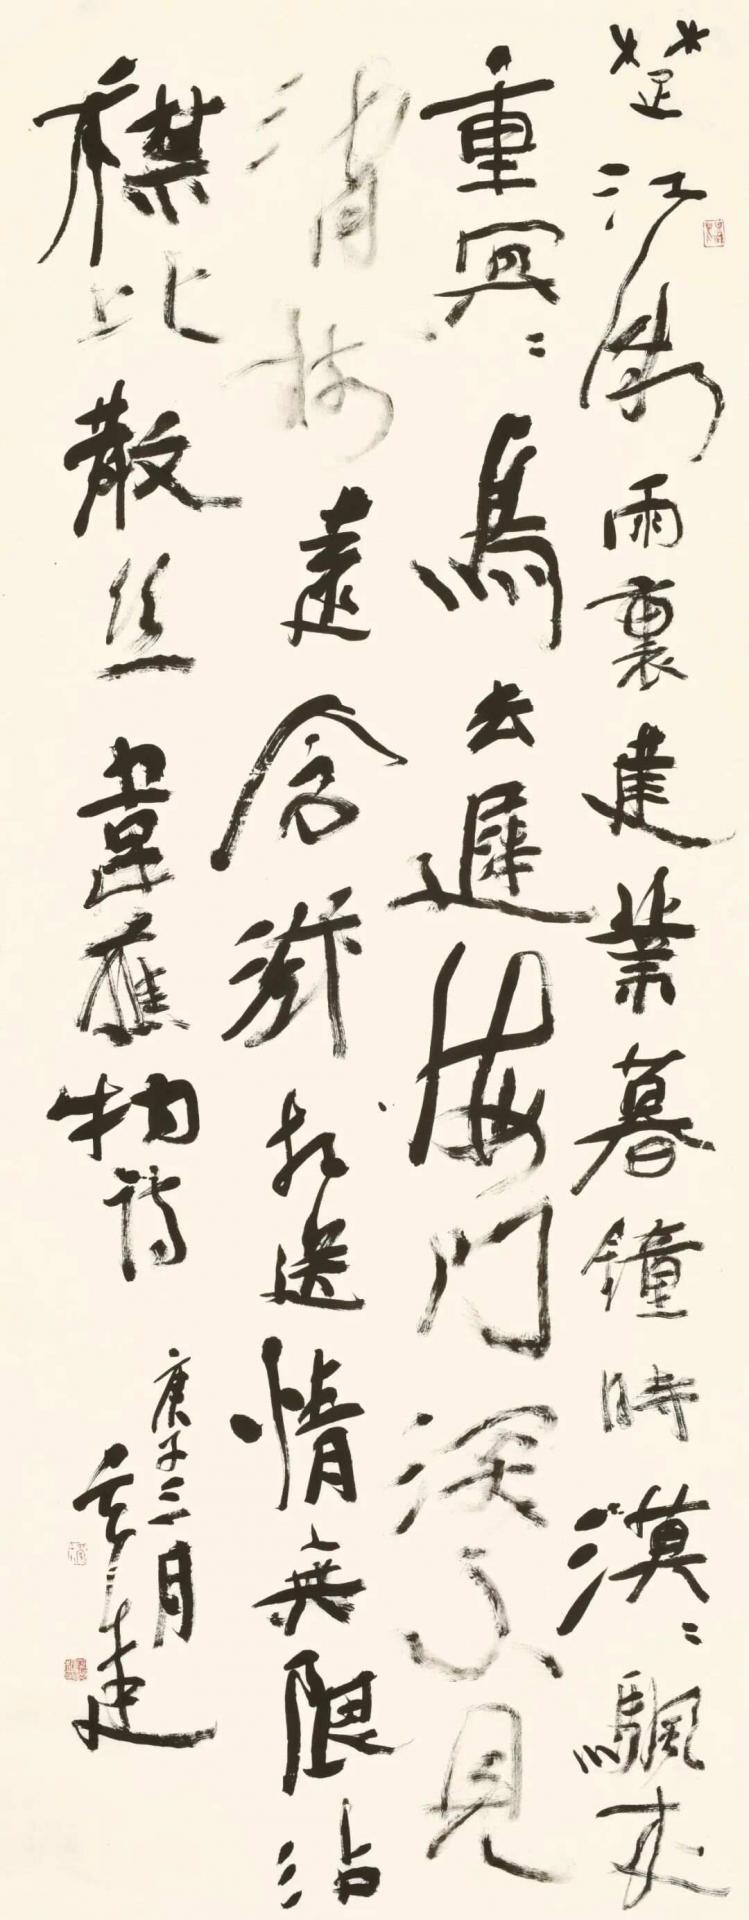 楚江微雨裏建業暮鐘時漠〻颿来
重冥〻鳥去遲海门深不見
浦樹遠含滋相送情無限沾
襟比散絲韋應物詩
庚子三月
建